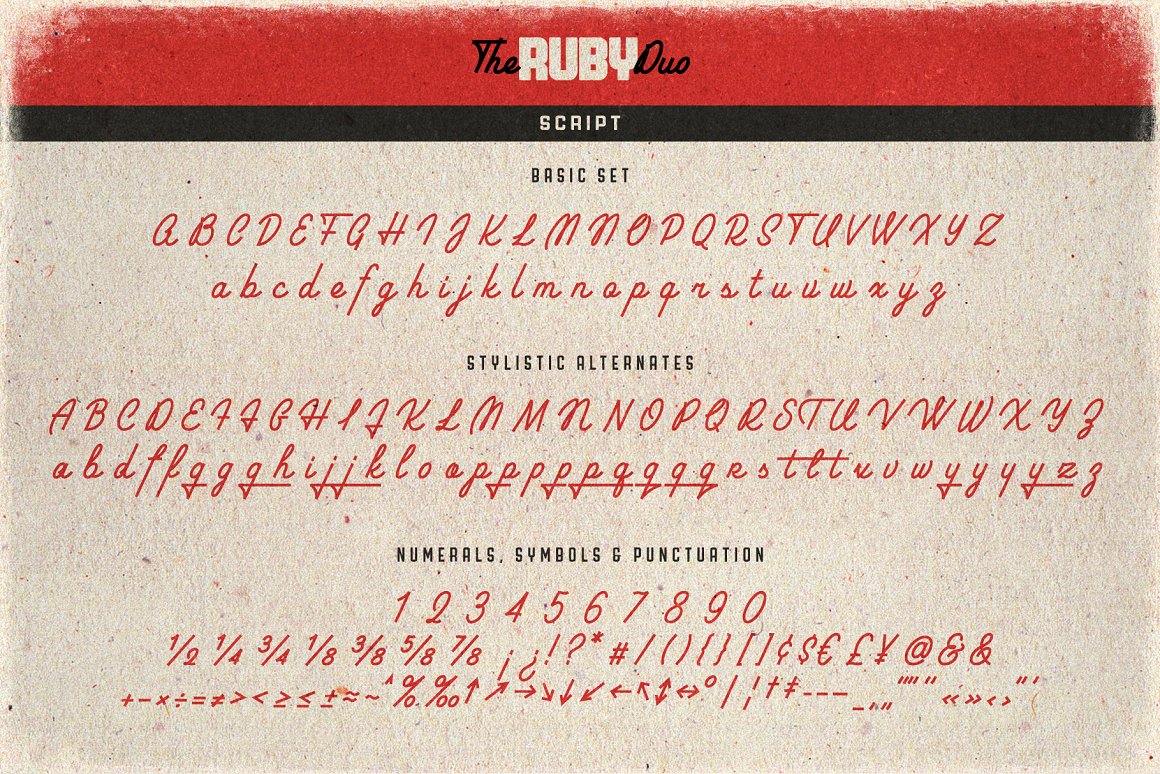 The RUBY Duo
SCRIPT
BASIC SET
A B C D E F G H I J K L M N O P Q R S T U V W X Y Z
a b c d e f g h i j k l m n o p q r s t u v w x y z
STYLISTIC ALTERNATES
A B C D E F F G H I J K L M M N N O P Q R S T U V W W X Y Z
a b d f f g g g h i j j k l o o p p p p p q q q q r s t l t u v w y y y y z z
NUMERALS, SYMBOLS & PUNCTUATION
1 2 3 4 5 6 7 8 9 0
½ ¼ ¾ ⅛ ⅜ ⅝ ⅞ ¡ ¿ ! ? * # / ( ) { } [ ] ¢ $ € £ ¥ @ & &
+ − × ÷ = ≠ > < ≥ ≤ ± ≈ ~ ^ % ‰ ↑ ↗ → ↘ ↓ ↙ ← ↖ ↕ ↔ ° | ¦ † ‡ - – — _ , „ “ ” « » ‹ › " '